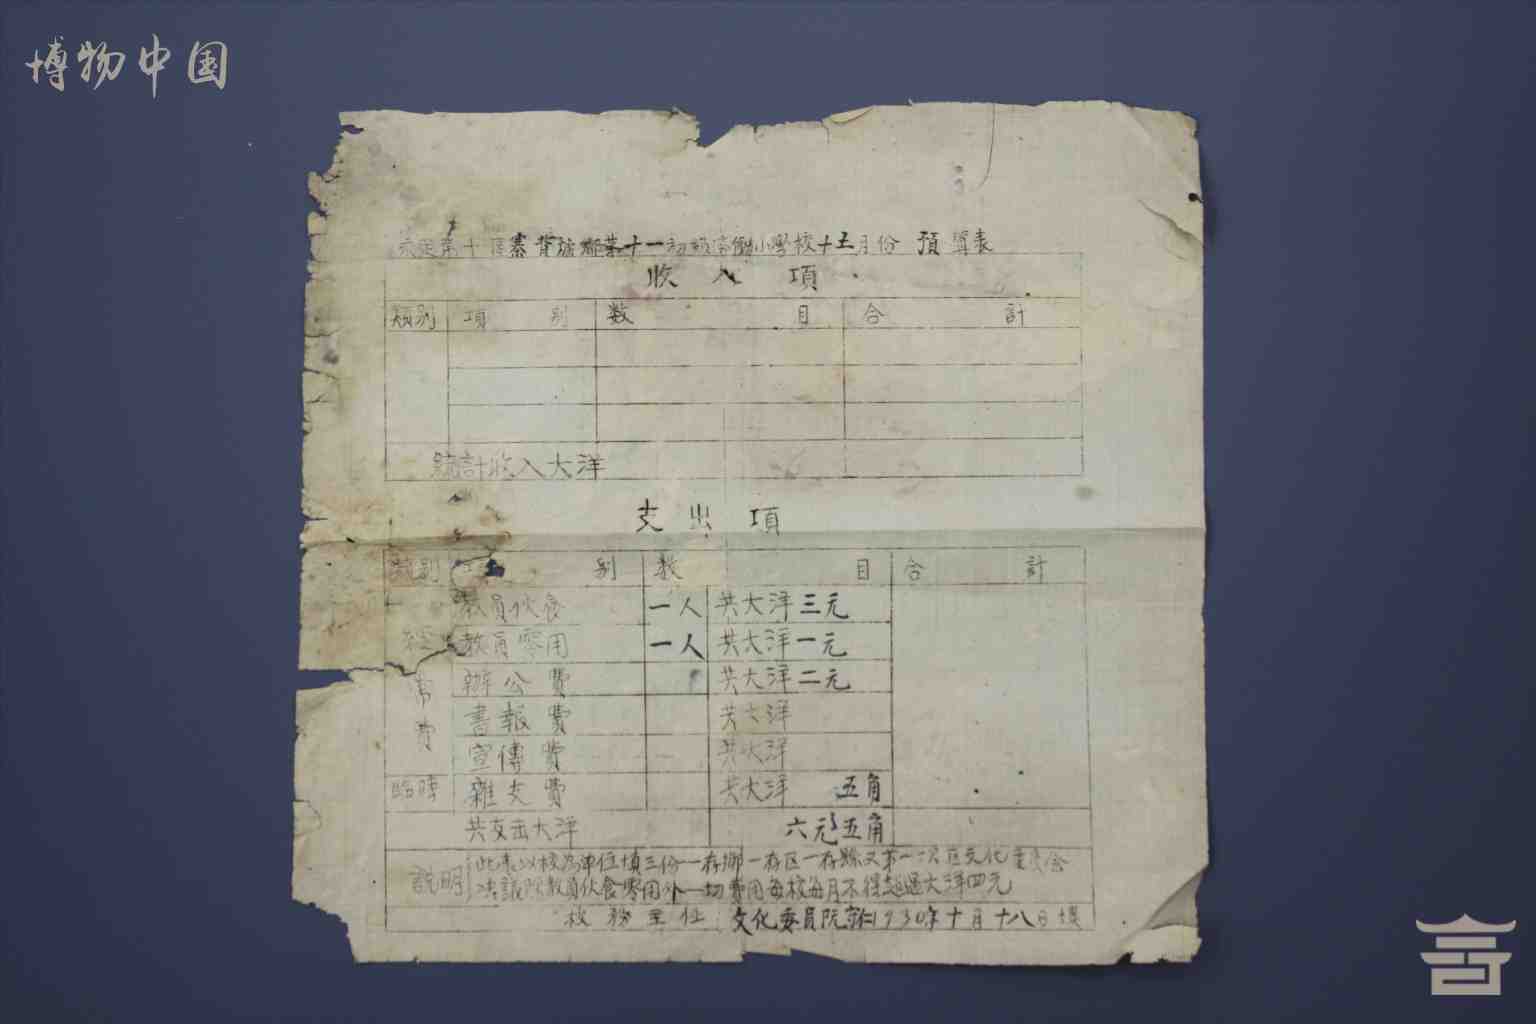 博物中国
第十區寨背墟鄉第十一初級勞働小學校十五月份 預算表
收入項
類別 項別 数目 合計
統計收入大洋
支出項
類別 别 数目 合計
經常費
教員伙食 一人 共大洋三元
教員零用 一人 共大洋一元
辦公費 共大洋二元
書報費 共大洋
宣傳費 共大洋
臨時 雜支費 共大洋 五角
共支出大洋 六元五角
説明 此表以校為單位填三份一存鄉一存区一存縣又第一次區文化委員会
决議除教員伙食零用外一切費用每校每月不得超過大洋四元
校務主任：文化委員阮 1930年十月十八日填